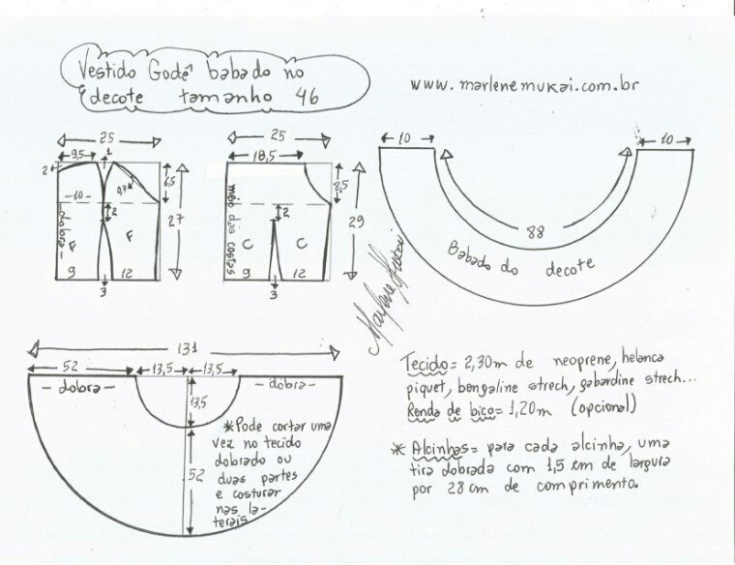 Vestido Godê babado no
decote tamanho 46
www.marlenemukai.com.br
25
9,5
1
2
0,7
6,5
-10-
2
27
-dobra-
F
F
9
12
3
25
18,5
8,5
meio das costas
2
29
C
C
9
12
3
10
10
88
Babado do decote
131
52
13,5
13,5
-dobra-
-dobra-
13,5
52
*Pode cortar uma
vez no tecido
dobrado ou
duas partes
e costurar
nas la-
terais
Tecido= 2,30m de neoprene, helanca
piquet, bengaline strech, gabardine strech...
Renda de bico= 1,20m (opcional)
* Alcinhas= para cada alcinha, uma
tira dobrada com 1,5 cm de largura
por 28 cm de comprimento.